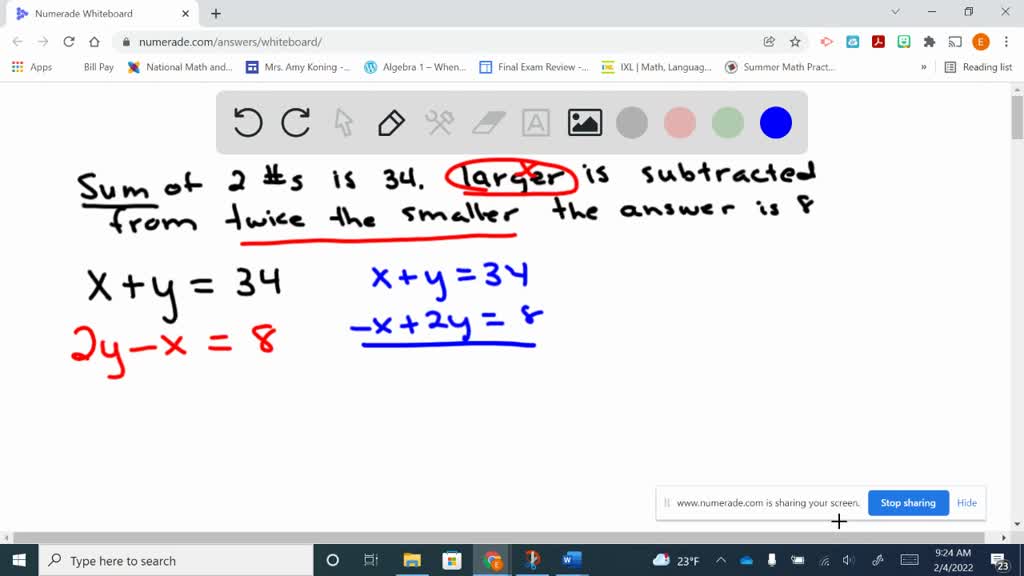 Numerade Whiteboard
numerade.com/answers/whiteboard/
E
Apps Bill Pay National Math and... Mrs. Amy Koning -... Algebra 1 – When... Final Exam Review -... IXL | Math, Languag... Summer Math Pract... » Reading list
A
Sum of 2 #s is 34. larger is subtracted
x
from twice the smaller the answer is 8
x + y = 34
2y - x = 8
x + y = 34
-x + 2y = 8
www.numerade.com is sharing your screen. Stop sharing Hide
Type here to search
23°F
9:24 AM
2/4/2022
23